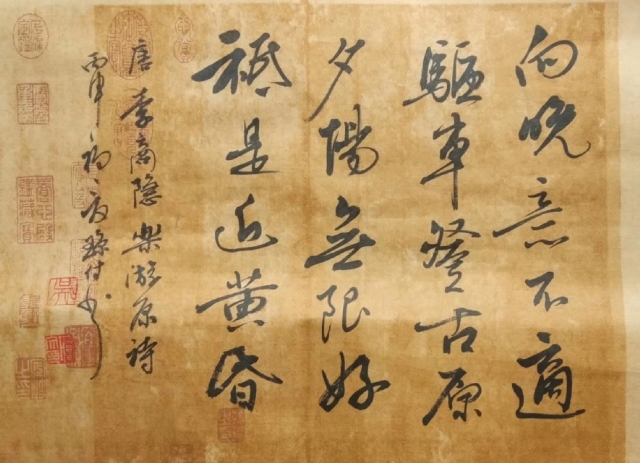 向晚意不適
驅車登古原
夕陽無限好
祗是近黃昏
唐李商隱樂游原詩
丙申初夏